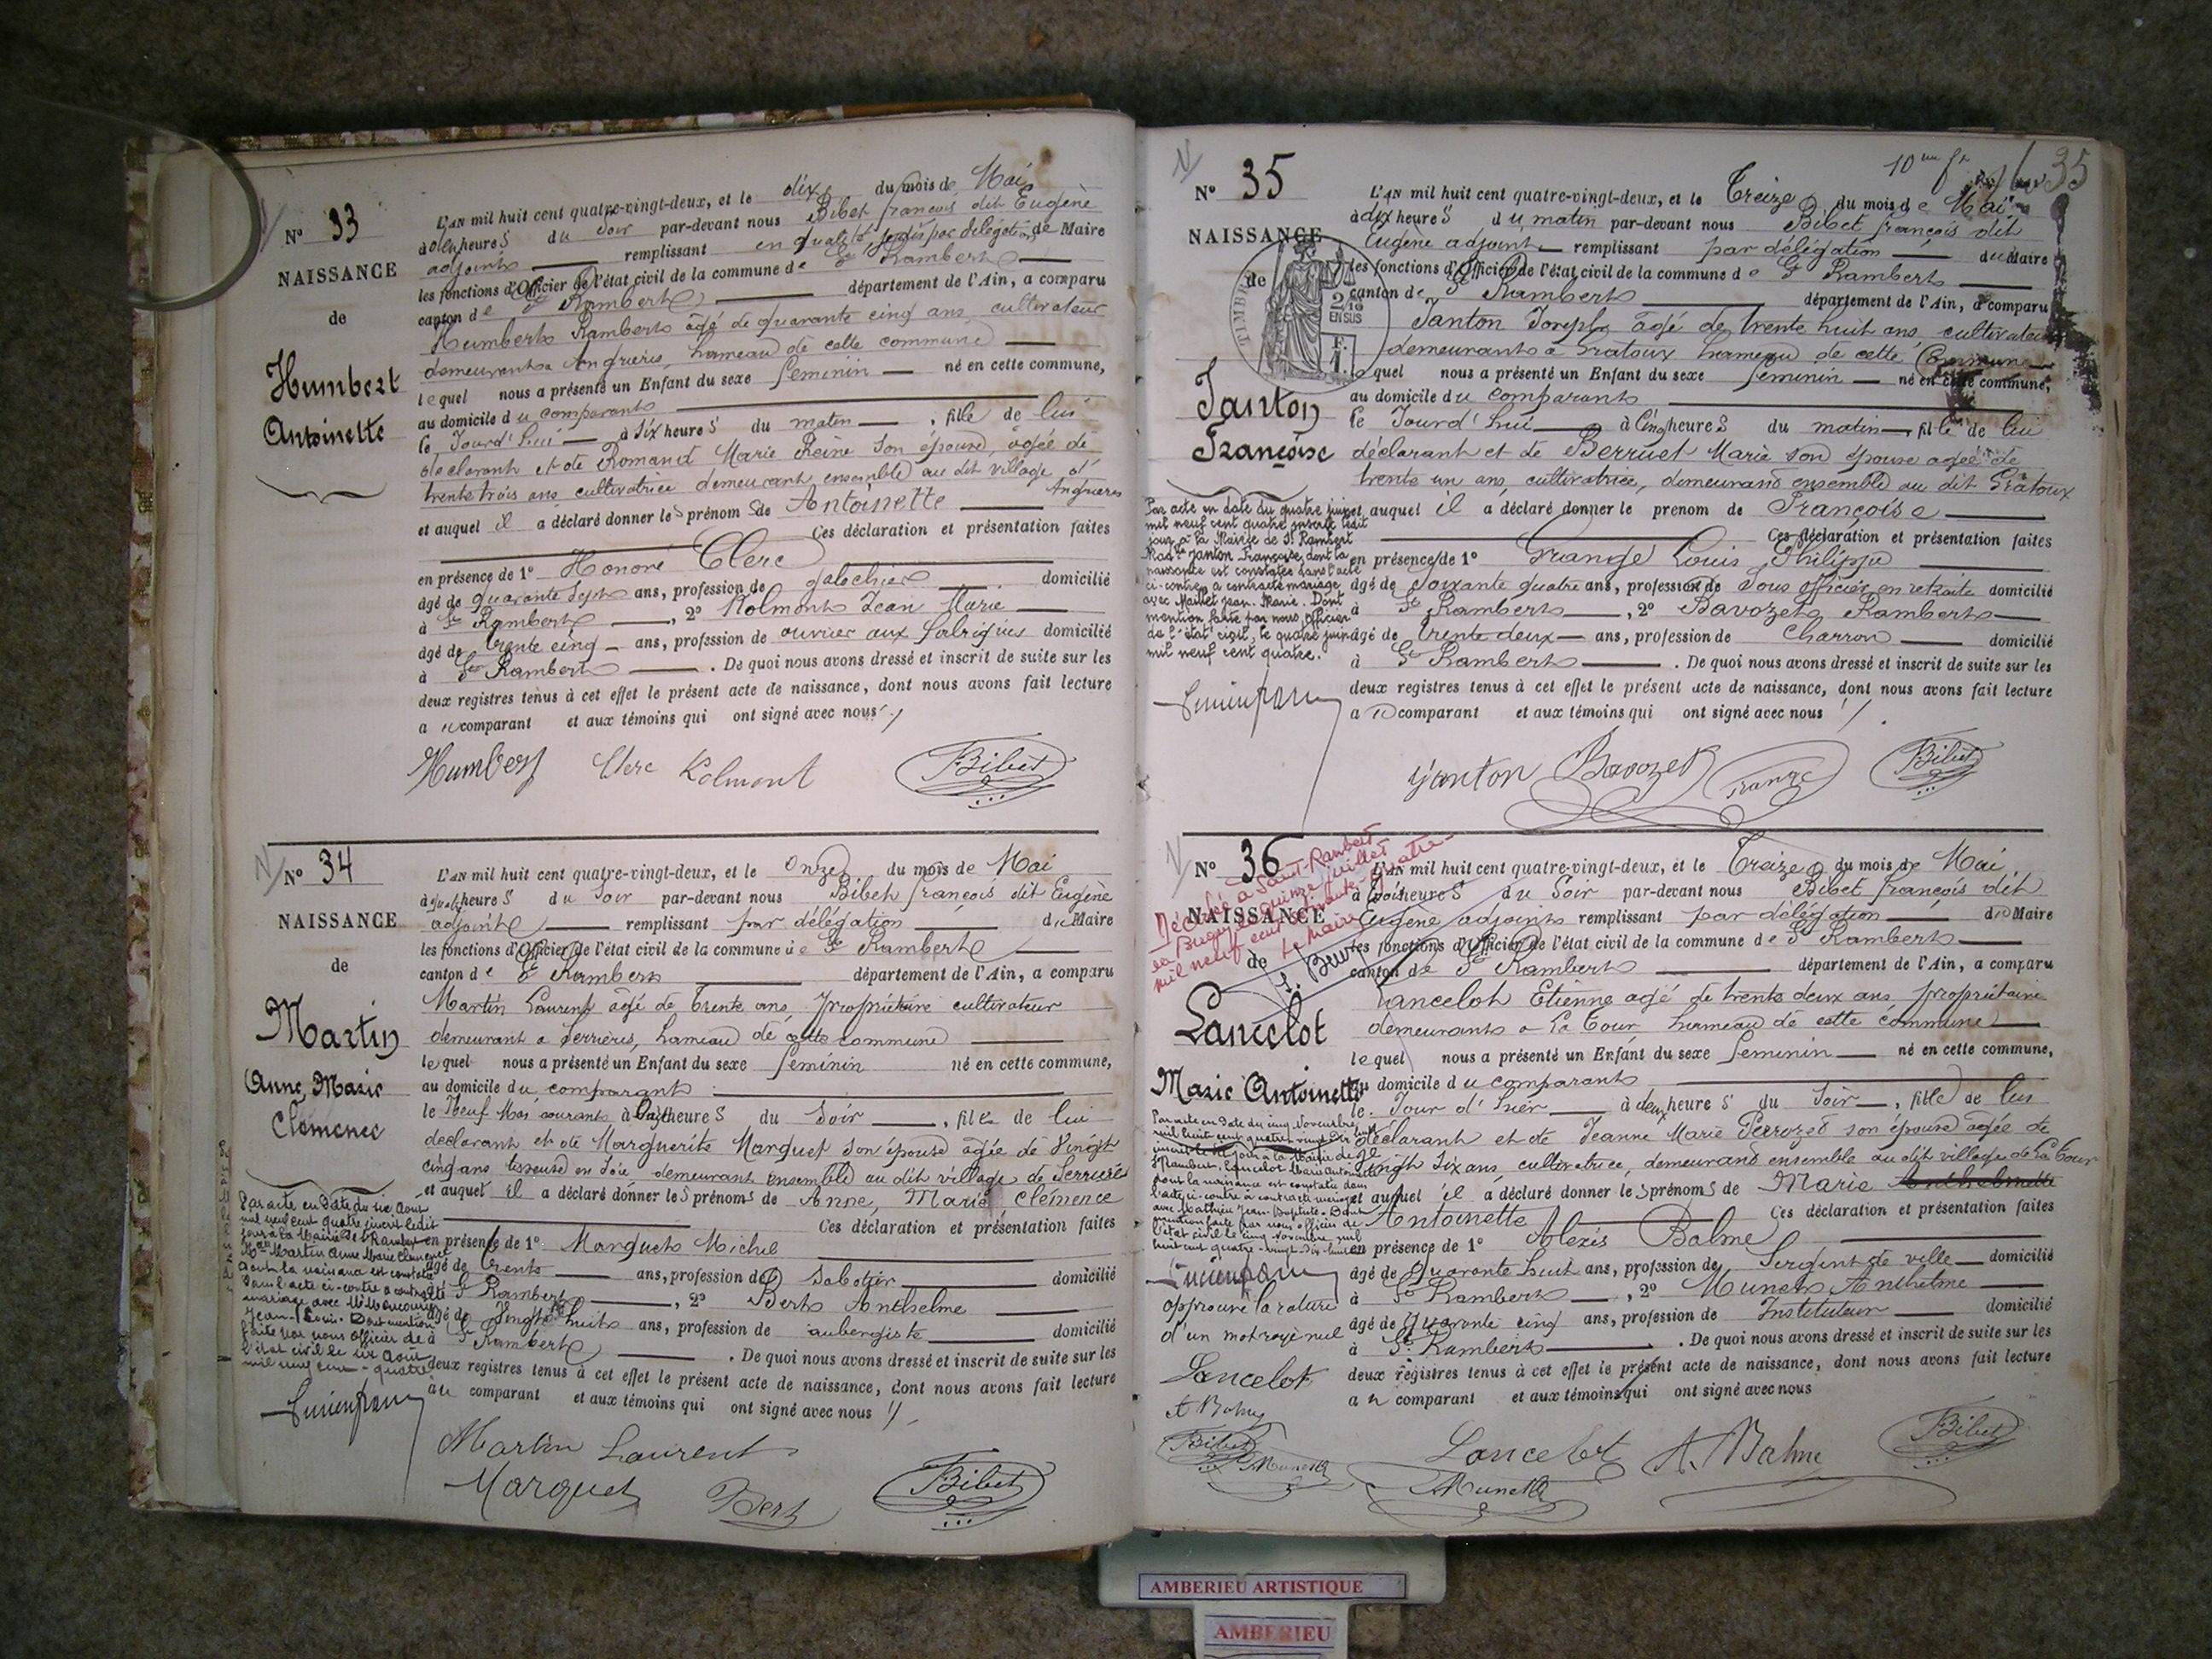 N° 33
NAISSANCE
de
Humbert
Antoinette
L'AN mil huit cent quatre-vingt-deux, et le dix du mois de Mai
à heures du Soir par-devant nous Bibet françois dit Eugène
adjoint remplissant en qualité par délégation de Maire
les fonctions d'Officier de l'état civil de la commune de St Rambert
canton de St Rambert département de l'Ain, a comparu
Humbert Rambert âgé de quarante cinq ans cultivateur
demeurant à Angrières, hameau de cette commune
lequel nous a présenté un Enfant du sexe féminin né en cette commune,
au domicile du comparant
le Jourd'hui à Six heures du matin, fille de lui
déclarant et de Romand Marie Reine son épouse, âgée de
trente trois ans cultivatrice demeurant ensemble au dit village d'
Angrieres
et auquel il a déclaré donner les prénoms de Antoinette
Ces déclaration et présentation faites
en présence de 1° Honoré Clerc
âgé de quarante Sept ans, profession de galochier domicilié
à St Rambert, 2° Kolmont Jean Marie
âgé de trente cinq ans, profession de ouvrier aux fabriques domicilié
à St Rambert. De quoi nous avons dressé et inscrit de suite sur les
deux registres tenus à cet effet le présent acte de naissance, dont nous avons fait lecture
au comparant et aux témoins qui ont signé avec nous
Humbert Clerc Kolmont Bibet
N° 34
NAISSANCE
de
Martin
Anne, Marie
Clémence
L'AN mil huit cent quatre-vingt-deux, et le Onze du mois de Mai
à heures du Soir par-devant nous Bibet françois dit Eugène
adjoint remplissant par délégation du Maire
les fonctions d'Officier de l'état civil de la commune de St Rambert
canton de St Rambert département de l'Ain, a comparu
Martin Laurent âgé de trente ans propriétaire cultivateur
demeurant à Serrières, hameau de cette commune
lequel nous a présenté un Enfant du sexe féminin né en cette commune,
au domicile du comparant
le Neuf Mai courant à Onze heures du Soir, fille de lui
déclarant et de Marguerite Marquet son épouse âgée de Vingt
cinq ans tisseuse en soie demeurant ensemble au dit village de Serrières
et auquel il a déclaré donner les prénoms de Anne, Marie Clémence
Ces déclaration et présentation faites
en présence de 1° Marquet Michel
âgé de trente ans, profession de Sabotier domicilié
à St Rambert, 2° Bert Anthelme
âgé de Vingt huit ans, profession de aubergiste domicilié
à St Rambert. De quoi nous avons dressé et inscrit de suite sur les
deux registres tenus à cet effet le présent acte de naissance, dont nous avons fait lecture
au comparant et aux témoins qui ont signé avec nous
Par acte en date du six Août
mil neuf cent quatre inscrit ledit
jour à la Mairie de St Rambert
Martin Anne Marie Clémence
dont la naissance est constatée
dans l'acte ci-contre a contracté
mariage avec
Jean-Louis. Dont mention
faite par nous Officier de
l'état civil le six Août
mil neuf cent quatre
Martin Laurent
Marquet Bert Bibet
35
N° 35
NAISSANCE
de
TIMBRE
2/10
EN SUS
Janton
Françoise
L'AN mil huit cent quatre-vingt-deux, et le Treize du mois de Mai
à dix heures du matin par-devant nous Bibet françois dit
Eugène adjoint remplissant par délégation du Maire
les fonctions d'Officier de l'état civil de la commune de St Rambert
canton de St Rambert département de l'Ain, a comparu
Janton Joseph âgé de trente huit ans cultivateur
demeurant à Gratoux hameau de cette Commune
lequel nous a présenté un Enfant du sexe féminin né en cette commune,
au domicile du comparant
le Jourd'hui à Cinq heures du matin, fille de lui
déclarant et de Berruet Marie son épouse agée de
trente un ans, cultivatrice, demeurand ensemble au dit Gratoux
auquel il a déclaré donner le prenom de Françoise
Ces déclaration et présentation faites
en présence de 1° Frange Louis Philippe
âgé de Soixante quatre ans, profession de Sous officier en retraite domicilié
à St Rambert, 2° Bavozet Rambert
âgé de trente deux ans, profession de Charron domicilié
à St Rambert. De quoi nous avons dressé et inscrit de suite sur les
deux registres tenus à cet effet le présent acte de naissance, dont nous avons fait lecture
au comparant et aux témoins qui ont signé avec nous
Par acte en date du quatre juin
mil neuf cent quatre inscrit ledit
jour à la Mairie de St Rambert
Janton Françoise, dont la
naissance est constatée dans l'acte
ci-contre a contracté mariage
avec Maillet Jean-Marie. Dont
mention faite par nous, officier
de l'état civil, le quatre juin
mil neuf cent quatre.
Janton Bavozet Frange Bibet
N° 36
NAISSANCE
de
Décédée à Saint-Rambert
en Bugey le quinze juillet
mil neuf cent cinquante-quatre
Le Maire
Lancelot
Marie Antoinette
L'AN mil huit cent quatre-vingt-deux, et le Treize du mois de Mai
à trois heures du Soir par-devant nous Bibet françois dit
Eugène adjoint remplissant par délégation du Maire
les fonctions d'Officier de l'état civil de la commune de St Rambert
canton de St Rambert département de l'Ain, a comparu
Lancelot Etienne agé de trente deux ans propriétaire
demeurant à La Tour hameau de cette commune
lequel nous a présenté un Enfant du sexe féminin né en cette commune,
au domicile du comparant
le Jour d'hier à deux heures du Soir, fille de lui
déclarant et de Jeanne Marie Perrozet son épouse agée de
Vingt Six ans, cultivatrice, demeurand ensemble au dit village de La Tour
et auquel il a déclaré donner les prénoms de Marie Anthelmette
Antoinette Ces déclaration et présentation faites
en présence de 1° Alexis Balme
âgé de quarante huit ans, profession de Sergent de ville domicilié
à St Rambert, 2° Munet Anthelme
âgé de quarante cinq ans, profession de Instituteur domicilié
à St Rambert. De quoi nous avons dressé et inscrit de suite sur les
deux registres tenus à cet effet le présent acte de naissance, dont nous avons fait lecture
au comparant et aux témoins qui ont signé avec nous
Par acte en date du cinq Novembre
mil huit cent quatre-vingt-dix-huit
inscrit le dit jour à la Mairie de
St Rambert, Lancelot Marie Antoinette
dont la naissance est constatée dans
l'acte ci-contre a contracté mariage
avec Mathieu Jean-Baptiste. Dont
mention faite par nous officier de
l'état civil le cinq Novembre mil
huit cent quatre-vingt-dix-huit
approuvé la rature
d'un mot rayé nul
Lancelot
A Balme
Bibet
Munet
Lancelot A. Balme Bibet
Munet
AMBERIEU ARTISTIQUE
AMBERIEU